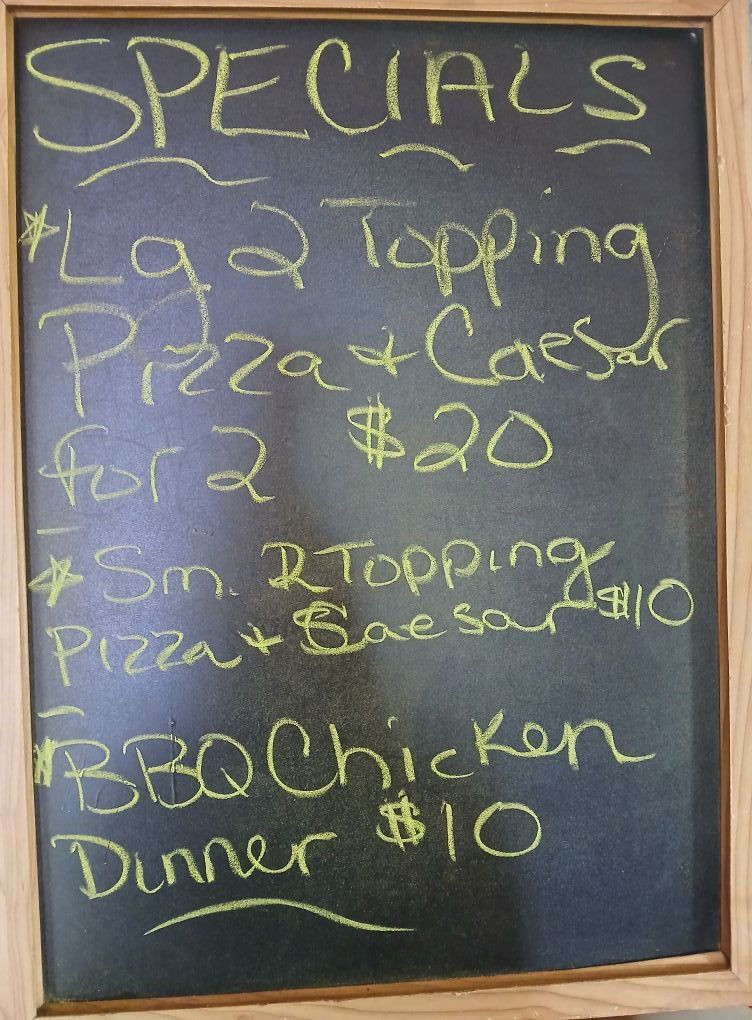 SPECIALS
*Lg 2 Topping
Pizza + Caesar
for 2 $20
* Sm. 2 Topping
Pizza + Caesar $10
*BBQ Chicken
Dinner $10